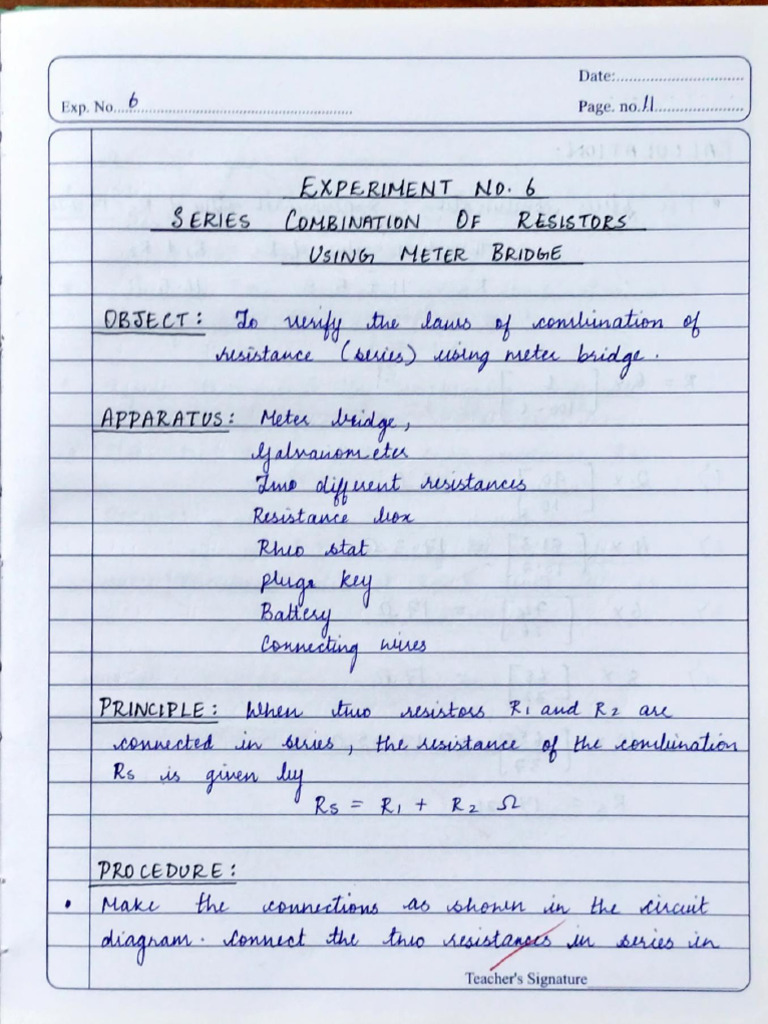 Date:
Exp. No. 6
Page. no. 11
EXPERIMENT NO. 6
SERIES COMBINATION OF RESISTORS
USING METER BRIDGE
OBJECT: To verify the laws of combination of
resistance (series) using meter bridge.
APPARATUS: Meter bridge,
Galvanometer
Two different resistances
Resistance box
Rheo stat
plugs key
Battery
Connecting wires
PRINCIPLE: When two resistors R1 and R2 are
connected in series, the resistance of the combination
Rs is given by
Rs = R1 + R2 Ω
PROCEDURE:
• Make the connections as shown in the circuit
diagram. Connect the two resistances in series in
Teacher's Signature